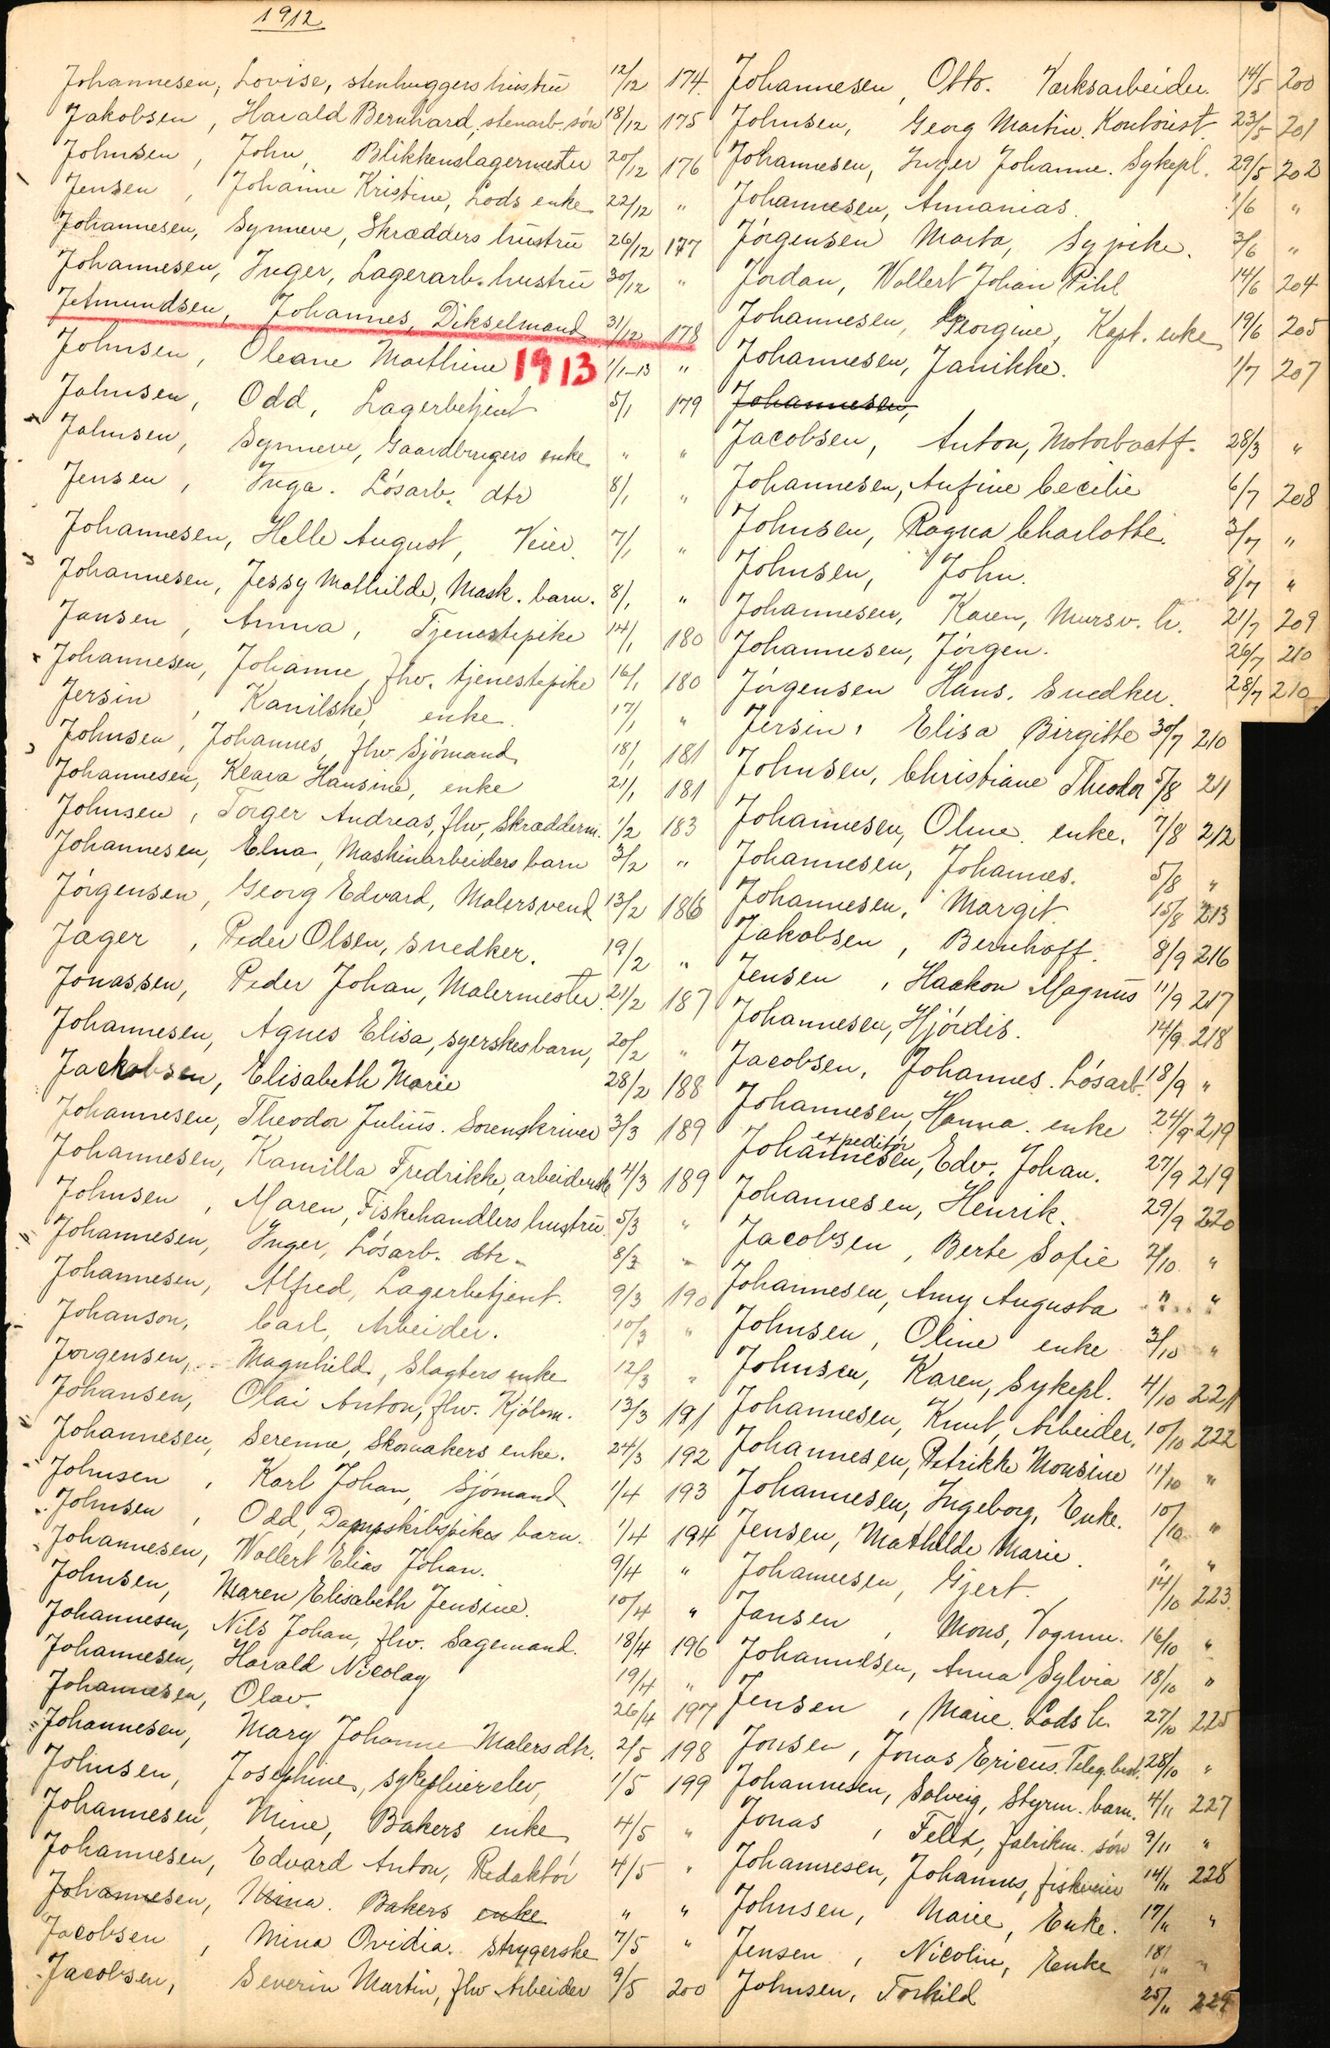 1912
Johannesen, Lovise, stenhuggers hustru 12/12 174
Jakobsen, Harald Bernhard, stenarb. sön 18/12 175
Johnsen, John, Blikkenslagermester 20/12 176
Jensen, Johanne Kristine, Lods enke 22/12 "
Johannesen, Synneve, Skrædders hustru 26/12 177
Johannesen, Inger, Lagerarb. hustru 30/12 "
Jetmundsen, Johannes, Dikselmand 31/12 178
Johnsen, Oleane Marthine 1913 1/1-13 "
Johnsen, Odd, Lagerbetjent 5/1 179
Johnsen, Synneve, Gaardbrugers enke " "
Jensen, Inga. Lösarb. dtr 8/1 "
Johannesen, Helle August, Veier 7/1 "
Johannesen, Jessy Mathilde, Mask. barn. 8/1 "
Jansen, Anna, Tjenestepike 14/1 180
Johannesen, Johanne, fhv. tjenestepike 16/1 180
Jersin, Kanilske, enke 17/1 "
Johnsen, Johannes, fhv Sjömand 18/1 181
Johannesen, Klara Hansine, enke 21/1 181
Johnsen, Torger Andreas, fhv, Skrædderm. 1/2 183
Johannesen, Elna, Maskinarbeiders barn 3/2 "
Jörgensen, Georg Edvard, Malersvend 13/2 186
Jager, Peder Olsen, snedker. 19/2 "
Jonassen, Peder Johan, Malermester. 21/2 187
Johannesen, Agnes Elisa, syerskes barn, 20/2 "
Jackobsen, Elisabeth Marie 28/2 188
Johannesen, Theodor Julius. Sorenskriver 3/3 189
Johannesen, Kamilla Fredrikke, arbeiderske 4/3 189
Johnsen, Maren, Fiskehandlers hustru. 5/3 "
Johannesen, Inger, Lösarb. dtr. 8/3 "
Johannesen, Alfred, Lagerbetjent. 9/3 190
Johanson, Carl, Arbeider. 10/3 "
Jörgensen, Magnhild, Slagters enke 12/3 "
Johansen, Olai Anton, fhv. Kjölm. 13/3 191
Johannesen, Serenne, Skomakers enke. 24/3 192
Johnsen, Karl Johan, Sjömand 1/4 193
Johnsen, Odd, Dampskibspikes barn. 1/4 194
Johannesen, Wollert Elias Johan. 9/4 "
Johnsen, Maren Elisabeth Jensine. 10/4 "
Johannesen, Nils Johan, fhv. Sagemand. 18/4 196
Johannesen, Harald Nicolay 19/4 "
Johannesen, Olav. 26/4 197
Johannesen, Mary Johanne Malers dtr. 2/5 198
Johnsen, Josephine, sykepleierelev, 1/5 199
Johannesen, Mine, Bakers enke 4/5 "
Johannesen, Edvard Anton, Redaktör 4/5 "
Johannesen, Mina. Bakers enke " "
Jacobsen, Mina Ovidia. strygerske 7/5 "
Jacobsen, Severin Martin, fhv Arbeider 9/5 200
Johannesen, Otto. Værksarbeider. 14/5 200
Johnsen, Georg Martin. Kontorist 23/5 201
Johannesen, Inger Johanne. Sykepl. 29/5 202
Johannesen, Annanias. 1/6 "
Jörgensen Marta, Sypike. 3/6 "
Jordan, Wollert Johan Pihl 14/6 204
Johannesen, Georgine, Kapt. enke 19/6 205
Johannesen, Janikke. 1/7 207
Johannesen,
Jacobsen, Anton, Motorbaatf. 28/3 "
Johannesen, Anfine Cecilie 6/7 208
Johnsen, Ragna Charlotte. 3/7 "
Johnsen, John. 8/7 "
Johannesen, Karen, Mursv. h. 21/7 209
Johannesen, Jörgen. 26/7 210
Jörgensen Hans. Snedker. 28/7 210
Jersin, Elisa Birgitte 30/7 210
Johnsen, Christiane Theodor 5/8 211
Johannesen, Oline enke. 7/8 212
Johannesen, Johannes. 5/8 "
Johannesen, Margit 15/8 213
Jakobsen, Bernhoff. 8/9 216
Jensen, Haakon Magnus 11/9 217
Johannesen, Hjördis. 14/9 218
Jacobsen, Johannes. Lösarb. 18/9 "
Johannesen, Hanna. enke 24/9 219
expeditör
Johannesen, Edv. Johan. 27/9 219
Johannesen, Henrik. 29/9 220
Jacobsen, Berte Sofie 2/10 "
Johannesen, Amy Augusta " "
Johnsen, Oline enke 3/10 "
Johnsen, Karen, Sykepl. 4/10 221
Johannesen, Knut, Arbeider. 10/10 222
Johannesen, Petrikke Monsine 11/10 "
Johannesen, Ingeborg, Enke. 10/10 "
Jensen, Mathilde Marie. " "
Johannesen, Gjert. 14/10 223.
Jansen, Mons, Vognm. 16/10 "
Johannesen, Anna Sylvia 18/10 "
Jensen, Marie. Lods h. 27/10 225
Jonsen, Jonas Ericus. Teleg. best. 28/10 "
Johannesen, Solveig, Styrm. barn. 4/11 227
Jonas, Felix, fabrikm. sön 9/11 "
Johannesen, Johannes, fiskeeier 14/11 228
Johnsen, Marie, Enke. 17/11 "
Jensen, Nicoline, Enke 18/11 "
Johnsen, Torkild 25/11 229